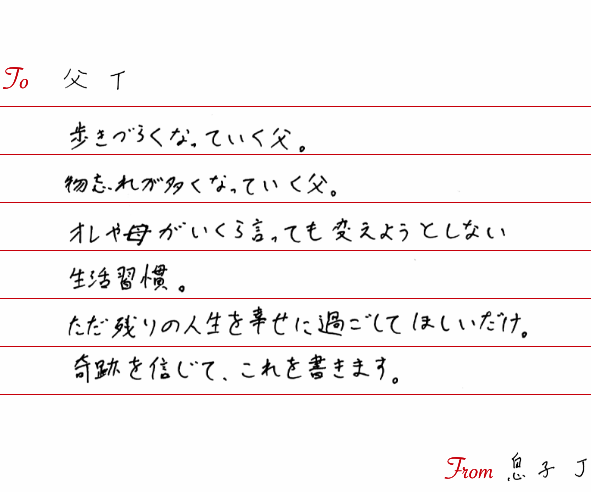 To 父 T
歩きづらくなっていく父。
物忘れが多くなっていく父。
オレや母がいくら言っても変えようとしない
生活習慣。
ただ残りの人生を幸せに過ごしてほしいだけ。
奇跡を信じて、これを書きます。
From 息子 J